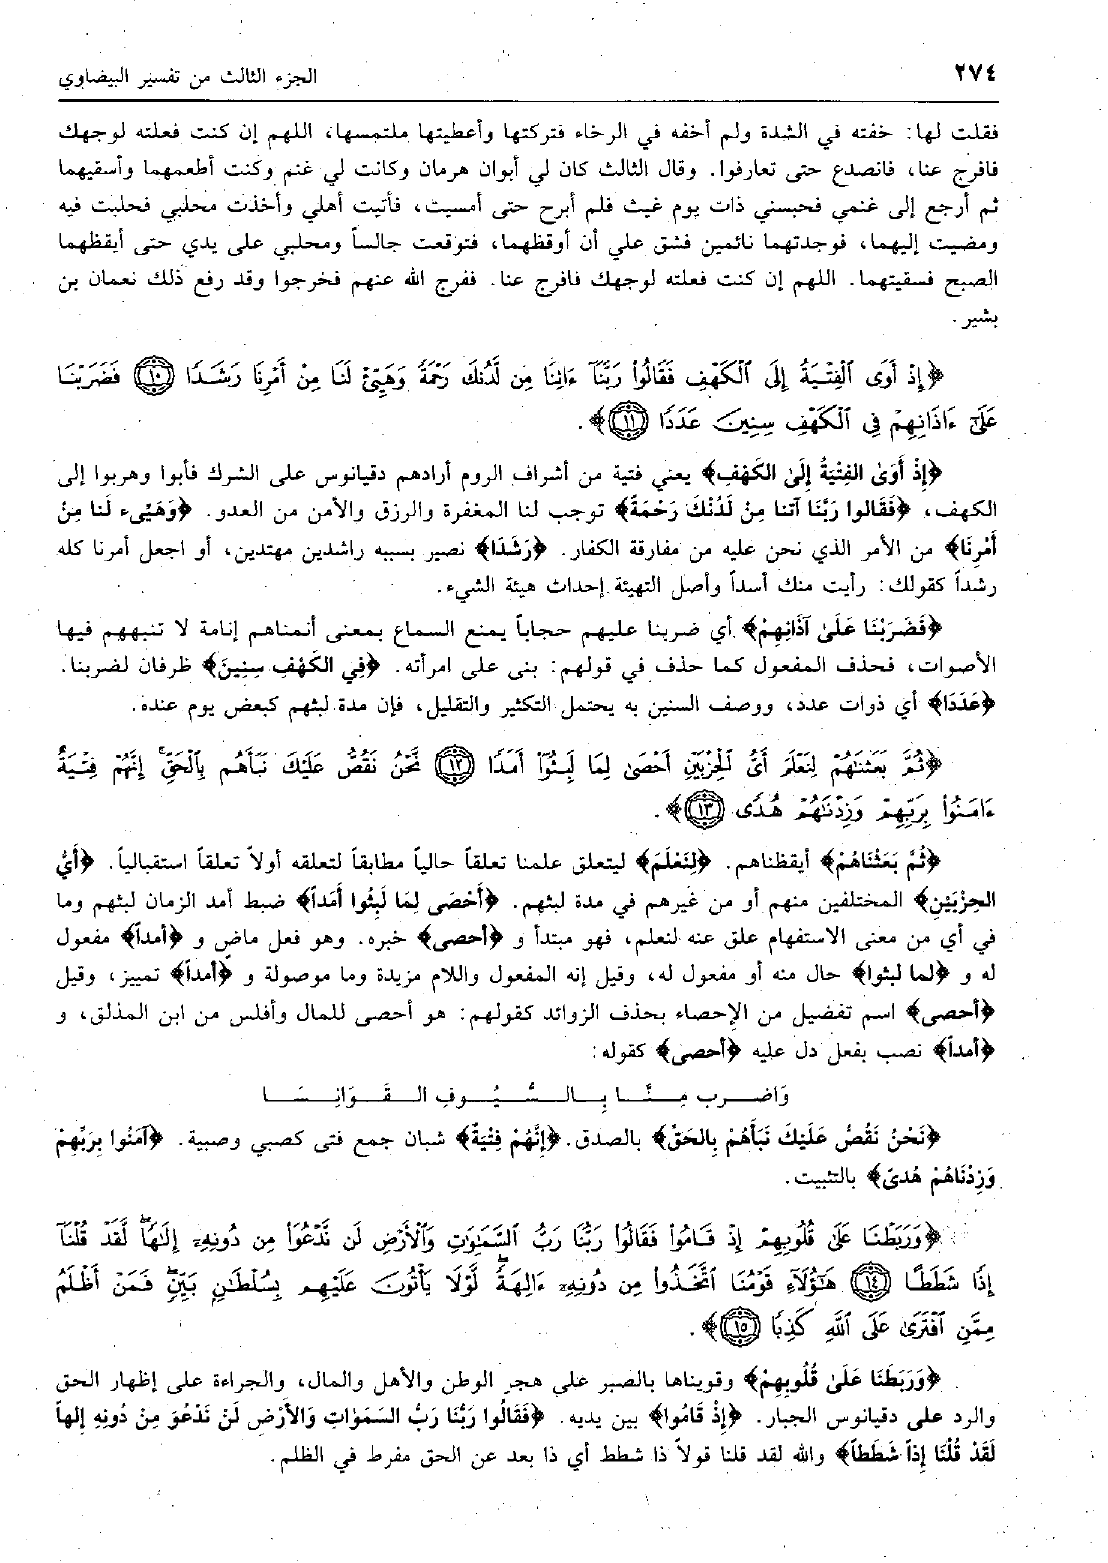 ٢٧٤
الجزء الثالث من تفسير البيضاوي
فقلت لها: خفته في الشدة ولم أخفه في الرخاء فتركتها وأعطيتها ملتمسها، اللهم إن كنت فعلته لوجهك
فافرج عنا، فانصدع حتى تعارفوا. وقال الثالث كان لي أبوان هرمان وكانت لي غنم وكنت أطعمهما وأسقيهما
ثم أرجع إلى غنمي فحبسني ذات يوم غيث فلم أبرح حتى أمسيت، فأتيت أهلي وأخذت محلبي فحلبت فيه
ومضيت إليهما، فوجدتهما نائمين فشق علي أن أوقظهما، فتوقعت جالساً ومحلبي على يدي حتى أيقظهما
الصبح فسقيتهما. اللهم إن كنت فعلته لوجهك فافرج عنا. ففرج الله عنهم فخرجوا وقد رفع ذلك نعمان بن
بشير.
﴿إِذْ أَوَى ٱلْفِتْيَةُ إِلَى ٱلْكَهْفِ فَقَالُوا۟ رَبَّنَآ ءَاتِنَا مِن لَّدُنكَ رَحْمَةً وَهَيِّئْ لَنَا مِنْ أَمْرِنَا رَشَدًا ﴿١٠﴾ فَضَرَبْنَا
عَلَىٰٓ ءَاذَانِهِمْ فِى ٱلْكَهْفِ سِنِينَ عَدَدًا ﴿١١﴾﴾.
﴿إِذْ أَوَىٰ الفِتْيَةُ إِلَىٰ الكَهْفِ﴾ يعني فتية من أشراف الروم أرادهم دقيانوس على الشرك فأبوا وهربوا إلى
الكهف، ﴿فَقَالُوا رَبَّنَا آتنا مِنْ لَدُنْكَ رَحْمَةً﴾ توجب لنا المغفرة والرزق والأمن من العدو. ﴿وَهَيِّىء لَنا مِنْ
أَمْرِنَا﴾ من الأمر الذي نحن عليه من مفارقة الكفار. ﴿رَشَدَا﴾ نصير بسببه راشدين مهتدين، أو اجعل أمرنا كله
رشداً كقولك: رأيت منك أسداً وأصل التهيئة إحداث هيئة الشيء.
﴿فَضَرَبْنَا عَلَىٰ آذَانِهِمْ﴾ أي ضربنا عليهم حجاباً يمنع السماع بمعنى أنمناهم إنامة لا تنبههم فيها
الأصوات، فحذف المفعول كما حذف في قولهم: بنى على امرأته. ﴿فِي الكَهْفِ سِنِينَ﴾ ظرفان لضربنا.
﴿عَدَدَا﴾ أي ذوات عدد، ووصف السنين به يحتمل التكثير والتقليل، فإن مدة لبثهم كبعض يوم عنده.
﴿ثُمَّ بَعَثْنَٰهُمْ لِنَعْلَمَ أَىُّ ٱلْحِزْبَيْنِ أَحْصَىٰ لِمَا لَبِثُوٓا۟ أَمَدًا ﴿١٢﴾ نَّحْنُ نَقُصُّ عَلَيْكَ نَبَأَهُم بِٱلْحَقِّ ۚ إِنَّهُمْ فِتْيَةٌ
ءَامَنُوا۟ بِرَبِّهِمْ وَزِدْنَٰهُمْ هُدًى ﴿١٣﴾﴾.
﴿ثُمَّ بَعَثْنَاهُمْ﴾ أيقظناهم. ﴿لِنَعْلَمَ﴾ ليتعلق علمنا تعلقاً حالياً مطابقاً لتعلقه أولاً تعلقاً استقبالياً. ﴿أَيُّ
الحِزْبَيْنِ﴾ المختلفين منهم أو من غيرهم في مدة لبثهم. ﴿أَحْصَى لِمَا لَبِثُوا أَمَداً﴾ ضبط أمد الزمان لبثهم وما
في أي من معنى الاستفهام علق عنه لنعلم، فهو مبتدأ و ﴿أحصى﴾ خبره. وهو فعل ماض و ﴿أمداً﴾ مفعول
له و ﴿لما لبثوا﴾ حال منه أو مفعول له، وقيل إنه المفعول واللام مزيدة وما موصولة و ﴿أمداً﴾ تمييز، وقيل
﴿أحصى﴾ اسم تفضيل من الإحصاء بحذف الزوائد كقولهم: هو أحصى للمال وأفلس من ابن المذلق، و
﴿أمداً﴾ نصب بفعل دل عليه ﴿أحصى﴾ كقوله:
وَاضرب مِنَّا بِالسُّيُوفِ القَوَانِسَا
﴿نَحْنُ نَقُصُّ عَلَيْكَ نَبَأَهُمْ بِالحَقِّ﴾ بالصدق. ﴿إِنَّهُمْ فِتْيَةٌ﴾ شبان جمع فتى كصبي وصبية. ﴿آمَنُوا بِرَبِّهِمْ
وَزِدْنَاهُمْ هُدىً﴾ بالتثبيت.
﴿وَرَبَطْنَا عَلَىٰ قُلُوبِهِمْ إِذْ قَامُوا۟ فَقَالُوا۟ رَبُّنَا رَبُّ ٱلسَّمَٰوَٰتِ وَٱلْأَرْضِ لَن نَّدْعُوَا۟ مِن دُونِهِۦٓ إِلَٰهًا ۖ لَّقَدْ قُلْنَآ
إِذًا شَطَطًا ﴿١٤﴾ هَٰٓؤُلَآءِ قَوْمُنَا ٱتَّخَذُوا۟ مِن دُونِهِۦٓ ءَالِهَةً ۖ لَّوْلَا يَأْتُونَ عَلَيْهِم بِسُلْطَٰنٍۭ بَيِّنٍ ۖ فَمَنْ أَظْلَمُ
مِمَّنِ ٱفْتَرَىٰ عَلَى ٱللَّهِ كَذِبًا ﴿١٥﴾﴾.
﴿وَرَبَطْنَا عَلَىٰ قُلُوبِهِمْ﴾ وقويناها بالصبر على هجر الوطن والأهل والمال، والجراءة على إظهار الحق
والرد على دقيانوس الجبار. ﴿إِذْ قَامُوا﴾ بين يديه. ﴿فَقَالُوا رَبُّنَا رَبُّ السَمَوَاتِ وَالأَرْضِ لَنْ نَدْعُوَ مِنْ دُونِهِ إِلهاً
لَقَدْ قُلْنَا إِذاً شَطَطاً﴾ والله لقد قلنا قولاً ذا شطط أي ذا بعد عن الحق مفرط في الظلم.